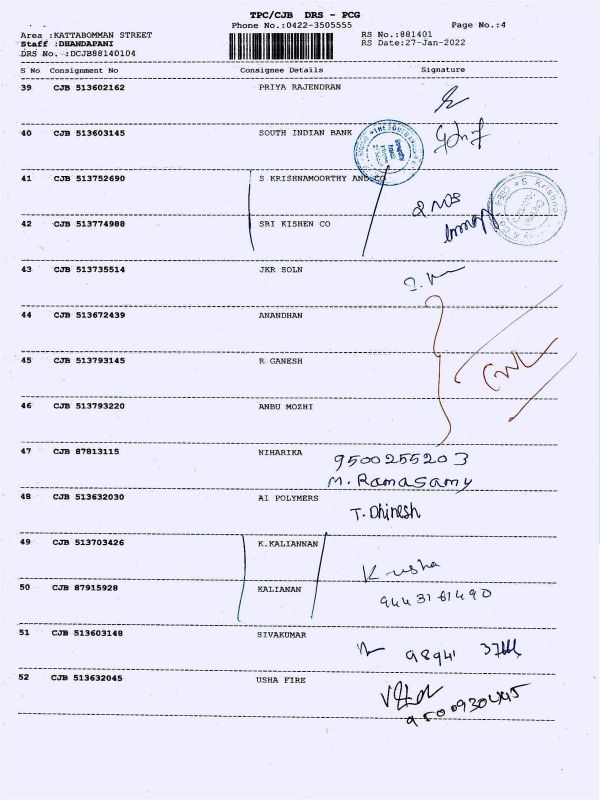 TPC/CJB DRS - PCG
Phone No.:0422-3505555
Page No.:4
Area :KATTABOMMAN STREET
RS No.:881401
Staff :DHANDAPANI
RS Date:27-Jan-2022
DRS No. :DCJB88140104
S No Consignment No Consignee Details Signature
39 CJB 513602162 PRIYA RAJENDRAN
40 CJB 513603145 SOUTH INDIAN BANK
41 CJB 513752690 S KRISHNAMOORTHY AND CO
42 CJB 513774988 SRI KISHEN CO
43 CJB 513735514 JKR SOLN
44 CJB 513672439 ANANDHAN
45 CJB 513793145 R GANESH
46 CJB 513793220 ANBU MOZHI
47 CJB 87813115 NIHARIKA 9500255203
M. Ramasamy
48 CJB 513632030 AI POLYMERS
T. Dhinesh
49 CJB 513703426 K.KALIANNAN
K usha
50 CJB 87915928 KALIANAN 9443161490
51 CJB 513603148 SIVAKUMAR
98941
52 CJB 513632045 USHA FIRE